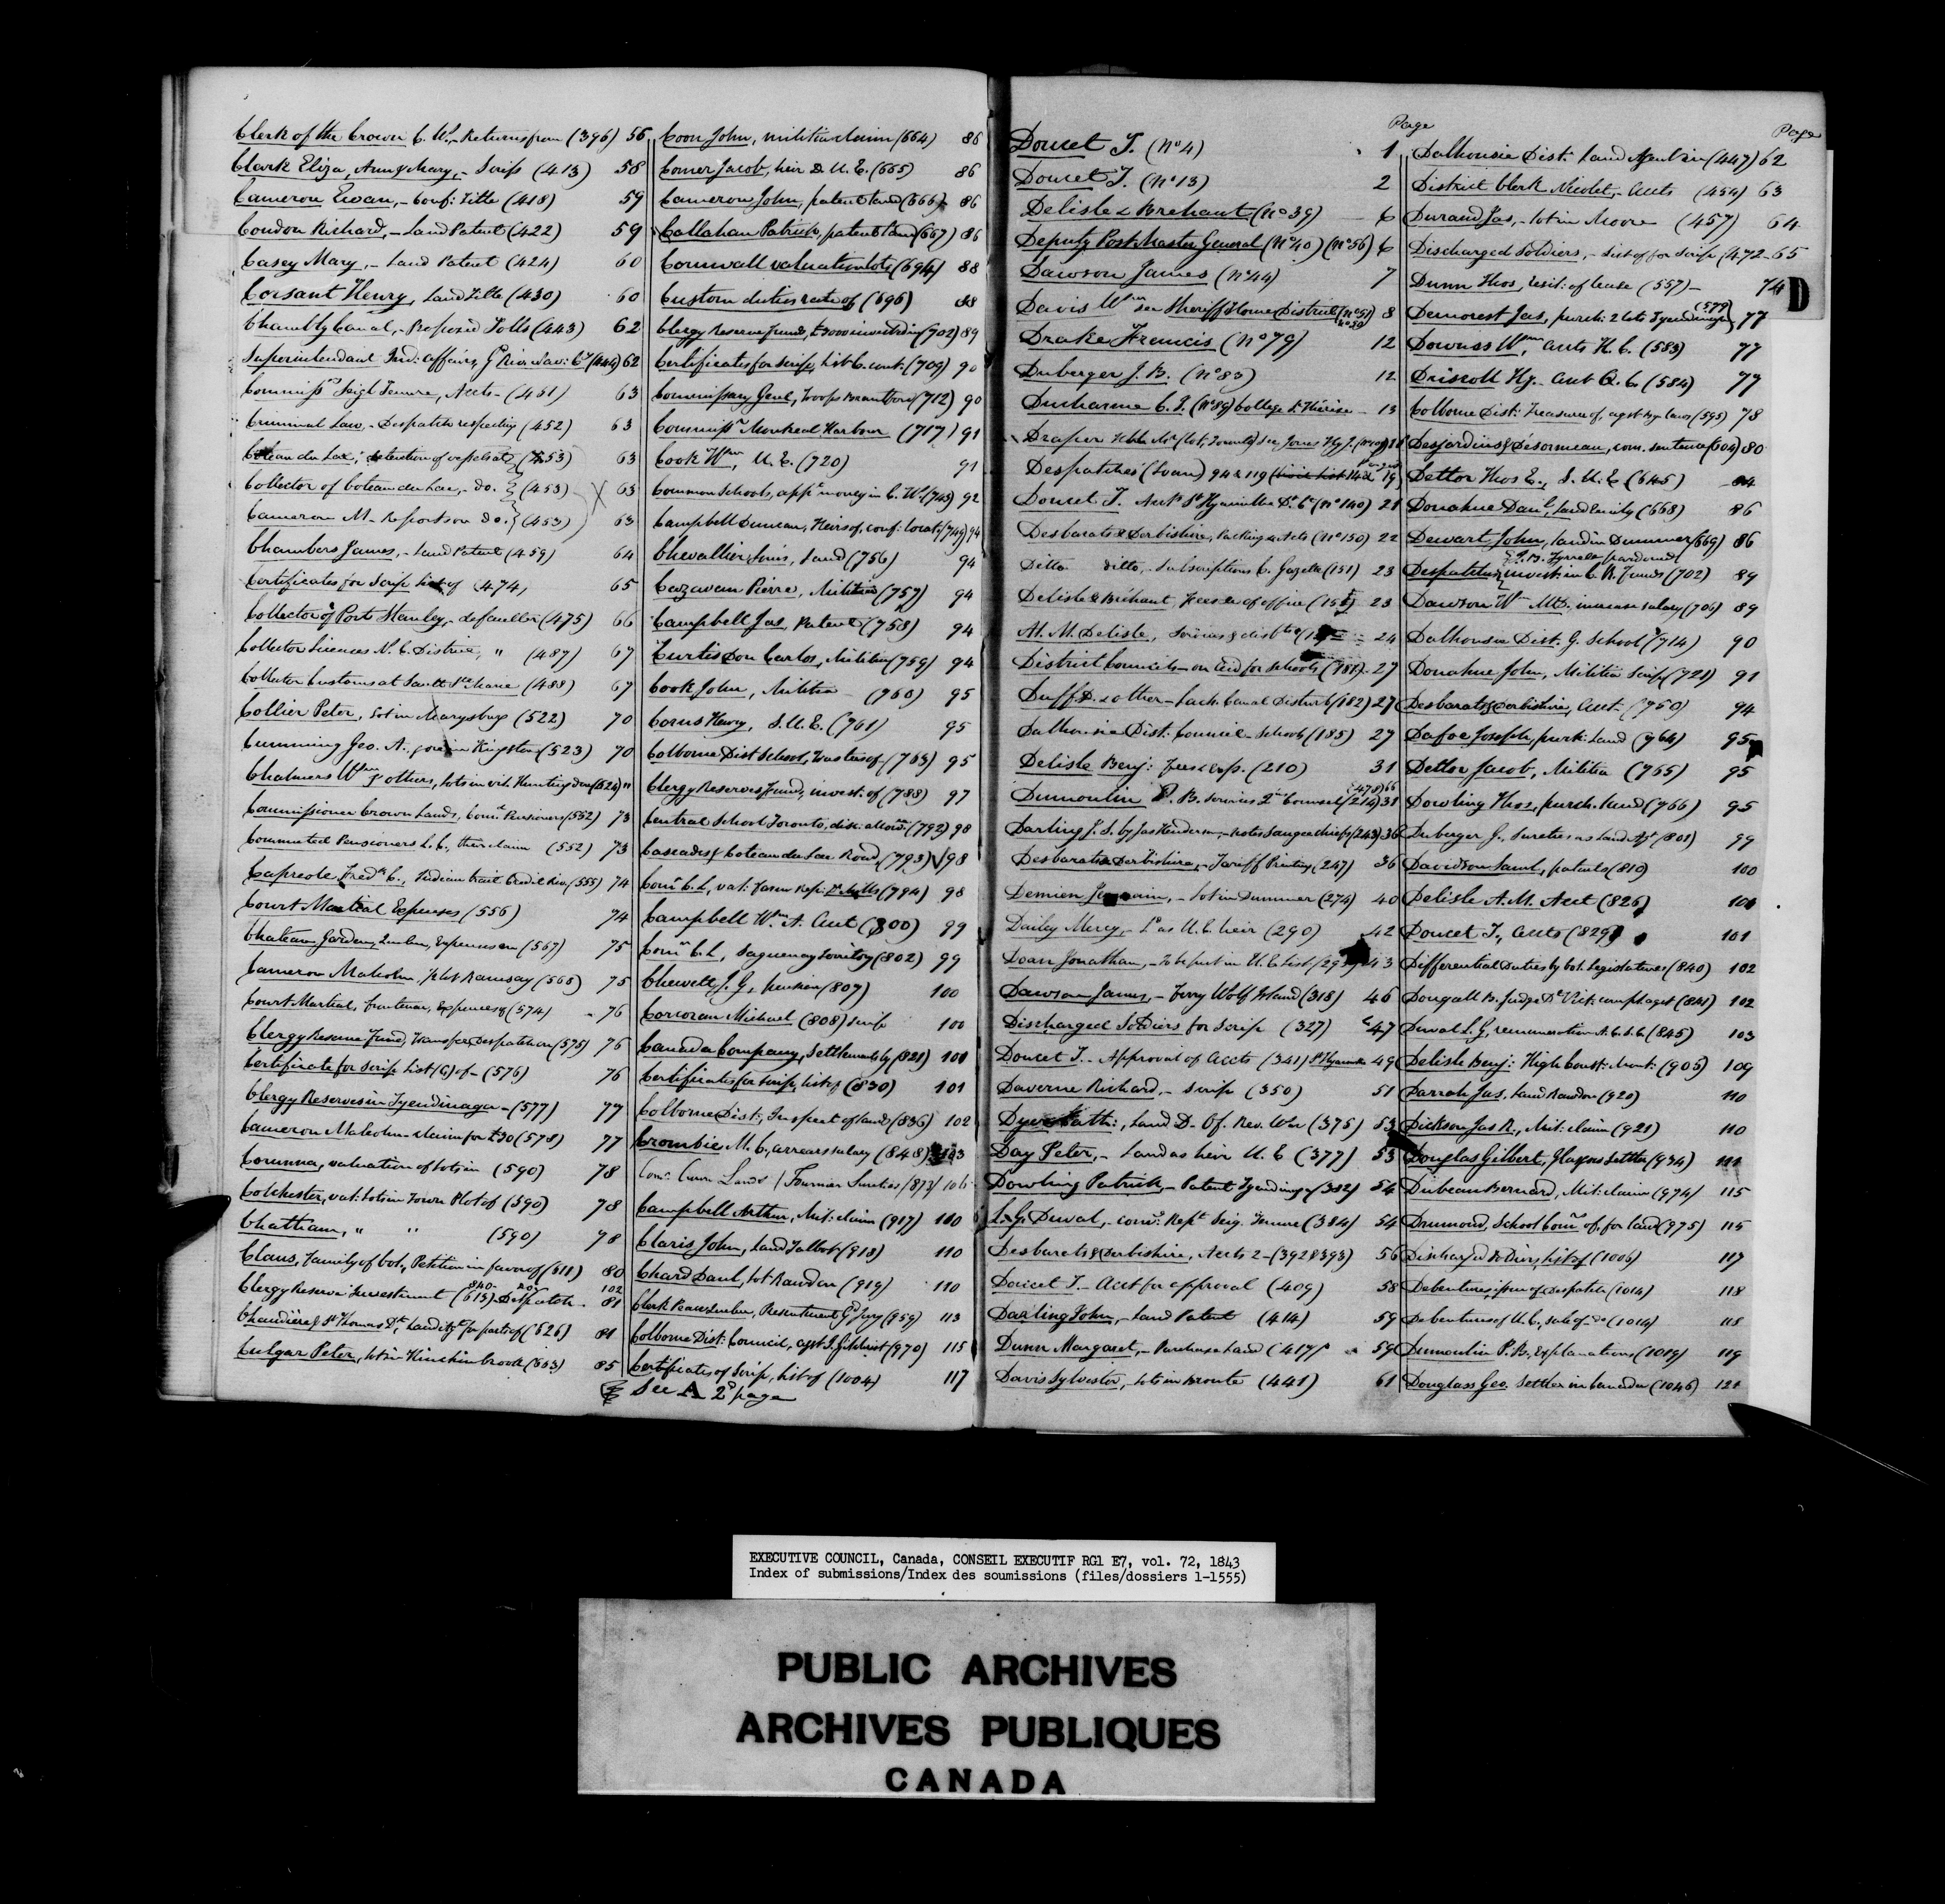 Clerk of the Crown C. W., - Returns from (396) 56
Clark Eliza, Ann & Mary, - Scrip (413) 58
Cameron Ewan, - Conf: Title (418) 59
Condon Richard, - Land Patent (422) 59
Casey Mary, - Land Patent (424) 60
Corsant Henry, Land Title (430) 60
Chambly Canal, - Proposed Tolls (443) 62
Superintendant Ind: Affairs, Gd River Nav: Co (444) 62
Commissrs Seigl Tenure, Accts - (451) 63
Criminal Law, - Despatch respecting (452) 63
Coteau du Lac, detention of vessels at (453) 63
Collector of Coteau du Lac, - do. (453) X 63
Cameron M - Report on do. (453) 63
Chambers James, - Land Patent (459) 64
Certificates for Scrip list of (474) 65
Collector of Port Stanley, - defaulter (475) 66
Collector Licences N. C. District, " (487) 67
Collector Customs at Sault Ste Marie (488) 67
Collier Peter, lot in Marysburg (522) 70
Cumming Geo. A., gore in Kingston (523) 70
Chalmers Wm & others, lots in vil. Huntingdon (524) "
Commissioner Crown Lands, Comd Pensioners (552) 73
Commuted Pensioners L. C., their claim (552) 73
Capreole Fredk C., Indian trail Credit Riv. (555) 74
Court Martial Expenses (556) 74
Chateau Garden, Quebec, Expenses on (567) 75
Cameron Malcolm, Ramsay (568) 75
Court Martial, Frontenac, Expenses of (574) 76
Clergy Reserve Fund, Transfer, Despatch on (575) 76
Certificate for Scrip list (G) of - (576) 76
Clergy Reserves in Tyendinaga - (577) 77
Cameron Malcolm - claim for £30 (578) 77
Corunna, valuation of lots in (590) 78
Colchester, val: lots in Town Plot of (590) 78
Chatham, " " (590) 78
Claus, Family of Col., Petition in favor of (611) 80
Clergy Reserve Investment (613) 840 Despatch 102 81
Chaudière & St Thomas Dt, Land Agt for parts of (626) 81
Culgar Peter, lot in Hinchinbrook (653) 85
Coon John, militia claim (664) 86
Comer Jacob, heir D. U. E. (665) 86
Cameron John, patent land (666) 86
Callahan Patrick, patent land (667) 86
Cornwall valuation lots (694) 88
Custom duties rate of (696) 88
Clergy Reserve Fund, £3000 invested in (702) 89
Certificates for Scrip, list C. cont: (709) 90
Commissary Genl, Troops Brantford (712) 90
Commissrs Montreal Harbour (717) 91
Cook Wm, U. E. (720) 91
Common Schools, appn money in C. W. (743) 92
Campbell Duncan, Heirs of, conf: locatn (749) 94
Chevallier Louis, land (756) 94
Cazavan Pierre, Militia (757) 94
Campbell Jas, Patent (758) 94
Curtis Don Carlos, Militia (759) 94
Cook John, Militia (760) 95
Corus Henry, S. U. E. (761) 95
Colborne Dist School, Trustees of - (763) 95
Clergy Reserves Fund, invest: of (788) 97
Central School Toronto, disc. allowce (792) 98
Cascades & Coteau du Lac Road, (793) 98
Comr C. L., val: Farm Rep: Dt Mills (794) 98
Campbell Wm A. Acct (800) 99
Comr C. L, Saguenay Territory (802) 99
Chewett J. G, pension (807) 100
Corcoran Michael (808) scrip 100
Canada Company, Settlements by (821) 101
Certificates for scrip, list of (830) 101
Colborne Dist:, Inspect of land (836) 102
Crombie M. C., arrears salary (848) 103
Comr Crown Lands / Fournier Sureties (873) 106
Campbell Arthur, Mil: claim (917) 110
Claris John, land Talbot (918) 110
Chard Danl, lot Rawdon (919) 110
Clerk Peace Quebec, Presentment Gd Jury (959) 113
Colborne Dist: Council, agst S. Gilchrist (970) 115
Certificates of Scrip, list of (1004) 117
See A 2d page
Page
Doucet T. (No 4) 1
Doucet T. (No 13) 2
Delisle & Brehaut (No 39) 6
Deputy Post Master General (No 40) (No 56) 6
Dawson James (No 44) 7
Davis Wm see Sheriff Home District (No 51) 8
Drake Francis (No 79) 12
Duberger J. B. (No 83) 12
Ducharme C. J. (No 89) College St Thérèse - 13
Draper see Jones Hy J.
Despatches (Loan) 94 & 119 19
Doucet T. Acct St Hyacinthe Dt Ct (No 140) 21
Desbarats & Derbishire, Packing Acts (No 150) 22
Ditto ditto, - Subscriptions C. Gazette (151) 23
Delisle & Bréhaut, Fees of office 23
A. M. Delisle, Services & disbts 24
District Councils - on aid for schools (181) 27
Duff D. & other - Lach. Canal Disturb (182) 27
Dalhousie Dist. Council - Schools (185) 27
Delisle Benj: fees & exp. (210) 31
Dumoulin P. B. services Qn Counsel (214) (478) 66 31
Darling J. S. by Jas Henderson, - notes Saugeen chiefs (243) 36
Desbarats & Derbishire, - Tariff Printing (247) 36
Demien, - lot in Dummer (274) 40
Dailey Mercy, - Ld as U. E. heir (290) 42
Doan Jonathan, - To be put in U. E. List 43
Dawson James, - Ferry Wolf Island (318) 46
Discharged Soldiers for Scrip (327) 47
Doucet T. - Approval of Accts (341) St Hyacinthe 49
Daverne Richard, - scrip (350) 51
Dyer Nath:, Land D. Of. Rev. War (375) 53
Day Peter, - Land as heir U. E (377) 53
Dowling Patrick, - Patent Tyendinaga (382) 54
L. G. Duval, - comr Rept Seig. Tenure (384) 54
Desbarats & Derbishire, Accts 2 - (392 & 393) 56
Doucet T. - Acct for approval (409) 58
Darling John, - Land Patent (414) 59
Dunn Margaret, - Purchase Land (417) 59
Davis Sylvester, - lots in Bronte (441) 61
Page
Dalhousie Dist: Land Agent in (447) 62
District Clerk Nicolet, - Accts (454) 63
Durand Jas, - lot in Moore (457) 64
Discharged Soldiers, - List of for Scrip (472 - 65
D
Dunn Thos, resit: of lease (557) - 74
Demorest Jas, purch: 2 lots Tyendinaga (579) 77
Downes Wm, Accts K. C. (583) 77
Driscoll Hy - Acct Q. C. (584) 77
Colborne Dist: Treasurer of, agst by-laws (595) 78
Desjardins & Désormeau, com. sentence (604) 80
Detlor Thos E., S. U. E (645) 84
Donahue Danl, land Emily (668) 86
Dewart John, land in Dummer (669) 86
Despatches J. B. Tyrrell pardoned
invest: in C. R. Funds (702) 89
Dawson Wm McD. increase salary (706) 89
Dalhousie Dist. G. School (714) 90
Donahue John, Militia Scrip (721) 91
Desbarats & Derbishire, Acct. (750) 94
Dafoe Joseph, purch: Land (764) 95
Detlor Jacob, Militia (765) 95
Dowling Thos, purch. land (766) 95
Duberger G., Sureties as Land Agt (801) 99
Davidson Saml, patents (819) 100
Delisle A. M. Acct (826) 101
Doucet T., Accts (829) 101
Differential Duties by Col. Legislatures (840) 102
Dougall B. Judge Dt Vict: compl agst (841) 102
Duval L. G, remuneration (845) 103
Delisle Benj: High Const: Mont: (905) 109
Darrah Jas, land Rawdon (920) 110
Dickson Jas R., Mil: claim (921) 110
Douglas Gilbert, Glasgow Settler (934) 111
Dubeau Bernard, Mil: claim (974) 115
Drumond, School Comrs of, for land (975) 115
Discharged Soldiers, list of (1006) 117
Debentures, issue of Despatch (1014) 118
Debentures of U. C., sale of - do (1014) 118
Dumoulin P. B., Explanations (1019) 119
Douglass Geo. Settler in Caradoc (1046) 121
EXECUTIVE COUNCIL, Canada, CONSEIL EXECUTIF RG1 E7, vol. 72, 1843
Index of submissions/Index des soumissions (files/dossiers 1-1555)
PUBLIC ARCHIVES
ARCHIVES PUBLIQUES
CANADA